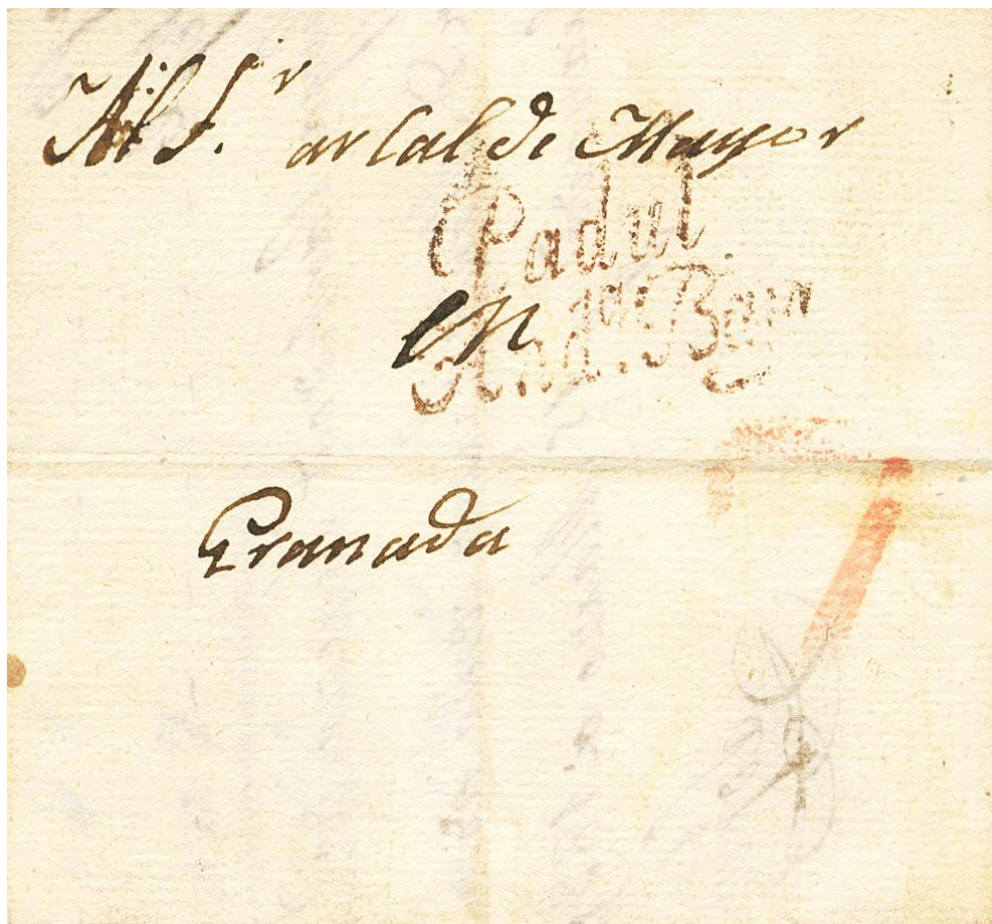 Al S.r arcalde Mayor
Padul
en
And.cia Baxa
Granada
7